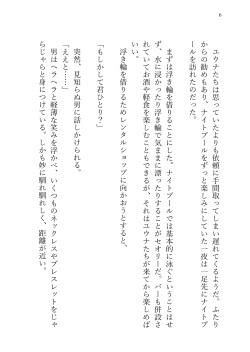 6
ユウナたちは思っていたよりも依頼に手間取ってしまい遅れてくるようだ。ふたり
からの勧めもあり、ナイトプールをずっと楽しみにしていた一夜は一足先にナイトプ
ールを訪れたのだった。
まずは浮き輪を借りることにした。ナイトプールでは基本的に泳ぐということはせ
ず、水に浸かったり浮き輪で気ままに漂ったりすることがセオリーだ。バーも併設さ
れていてお酒や軽食を楽しむこともできるが、それはユウナたちが来てから楽しめば
いい。
浮き輪を借りるためレンタルショップに向かおうとすると、
「もしかして君ひとり？」
突然、見知らぬ男に話しかけられる。
「ええと……」
男はヘラヘラと軽薄な笑みを浮かべ、いくつものネックレスやブレスレットをじゃ
らじゃらと身につけている。しかも妙に馴れ馴れしく、距離が近い。